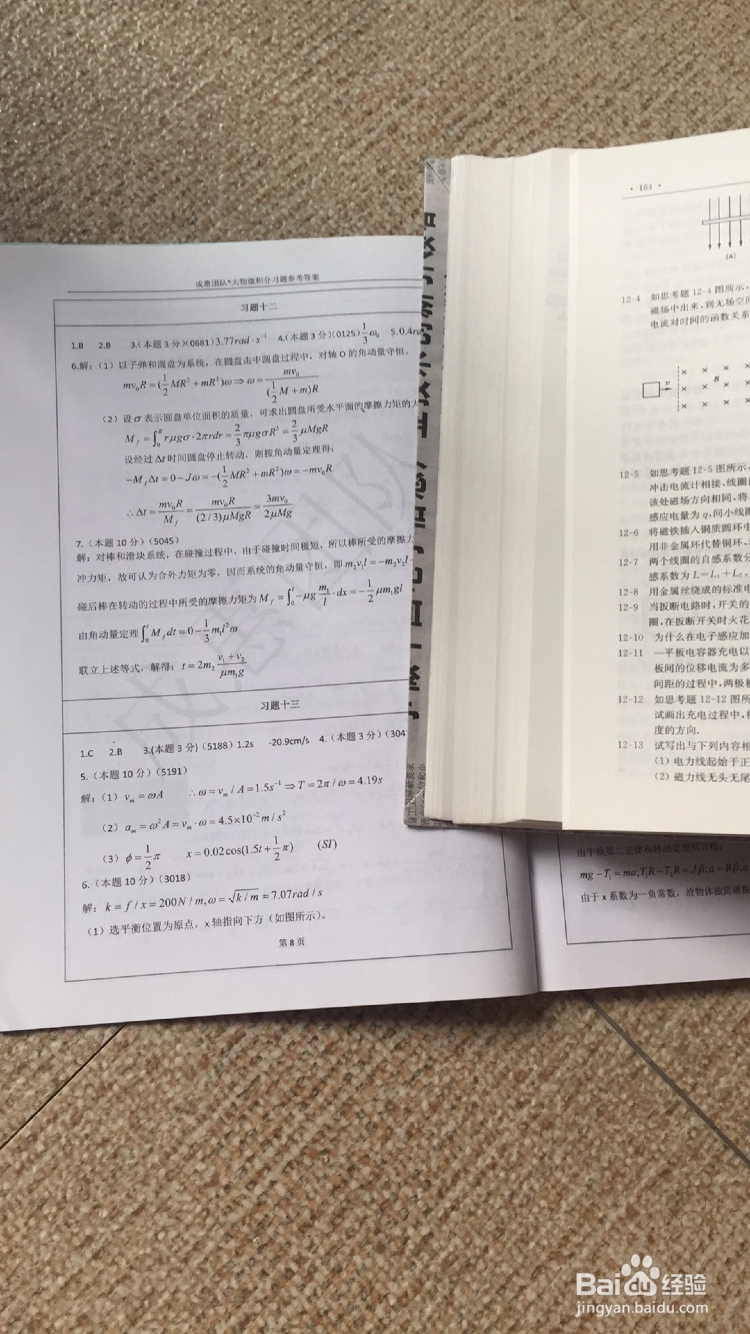 成惠团队*大物微积分习题参考答案
习题十二
1.B 2.B 3.(本题3分)(0681)3.77rad·s⁻¹ 4.(本题3分)(0125) 1/3 ω₀ 5.0.4
6.解:(1)以子弹和圆盘为系统,在圆盘击中圆盘过程中,对轴O的角动量守恒。
mv₀R=(1/2 MR²+mR²)ω⇒ω= mv₀/((1/2 M+m)R)
(2)设σ表示圆盘单位面积的质量,可求出圆盘所受水平面的摩擦力矩的
M_f=∫₀^R rμgσ·2πrdr=2/3 πμgσR³=2/3 μMgR
设经过Δt时间圆盘停止转动,则按角动量定理得:
-M_fΔt=0-Jω=-(1/2 MR²+mR²)ω=-mv₀R
∴Δt= mv₀R/M_f = mv₀R/((2/3)μMgR) = 3mv₀/2μMg
7.(本题10分)(5045)
解:对棒和滑块系统,在碰撞过程中,由于碰撞时间极短,所以棒所受的摩擦
冲力矩,故可认为合外力矩为零,因而系统的角动量守恒,即m₂v₁l=-m₂v₂l
碰后棒在转动的过程中所受的摩擦力矩为M_f=∫₀^l -μg m₁/l ·dx=-1/2 μm₁gl
由角动量定理∫₀^t M_f dt=0-1/3 m₁l²ω
联立上述等式,解得:t=2m₂ (v₁+v₂)/μm₁g
习题十三
1.C 2.B 3.(本题3分)(5188)1.2s -20.9cm/s 4.(本题3分)(304
5.(本题10分)(5191)
解:(1)v_m=ωA ∴ω=v_m/A=1.5s⁻¹⇒T=2π/ω=4.19s
(2)a_m=ω²A=v_m·ω=4.5×10⁻²m/s²
(3)φ=1/2 π x=0.02cos(1.5t+1/2 π) (SI)
6.(本题10分)(3018)
解:k=f/x=200N/m,ω=√(k/m)≈7.07rad/s
(1)选平衡位置为原点,x轴指向下方(如图所示)。
第8页
由牛顿第二定律和转动定理列方程:
mg-T₁=ma;T₁R-T₂R=Jβ;a=Rβ;
由于x系数为一负常数,故物体做简谐
·164·
(a)
12-4 如思考题12-4图所示,
磁场中出来,到无场空间
电流对时间的函数关系
v
B
12-5 如思考题12-5图所示,
冲击电流计相接,线圈
该处磁场方向相同,将
感应电量为q,问小线圈
12-6 将磁铁插入铜质圆环中
用非金属环代替铜环,
12-7 两个线圈的自感系数分
感系数为L=L₁+L₂,
12-8 用金属丝绕成的标准电
12-9 当扳断电路时,开关的
圈,在扳断开关时火花
12-10 为什么在电子感应加
12-11 一平板电容器充电以
板间的位移电流为多
间距的过程中,两极板
12-12 如思考题12-12图所
试画出充电过程中,
度的方向.
12-13 试写出与下列内容相
(1)电力线起始于正
(2)磁力线无头无尾
Baidu经验
jingyan.baidu.com